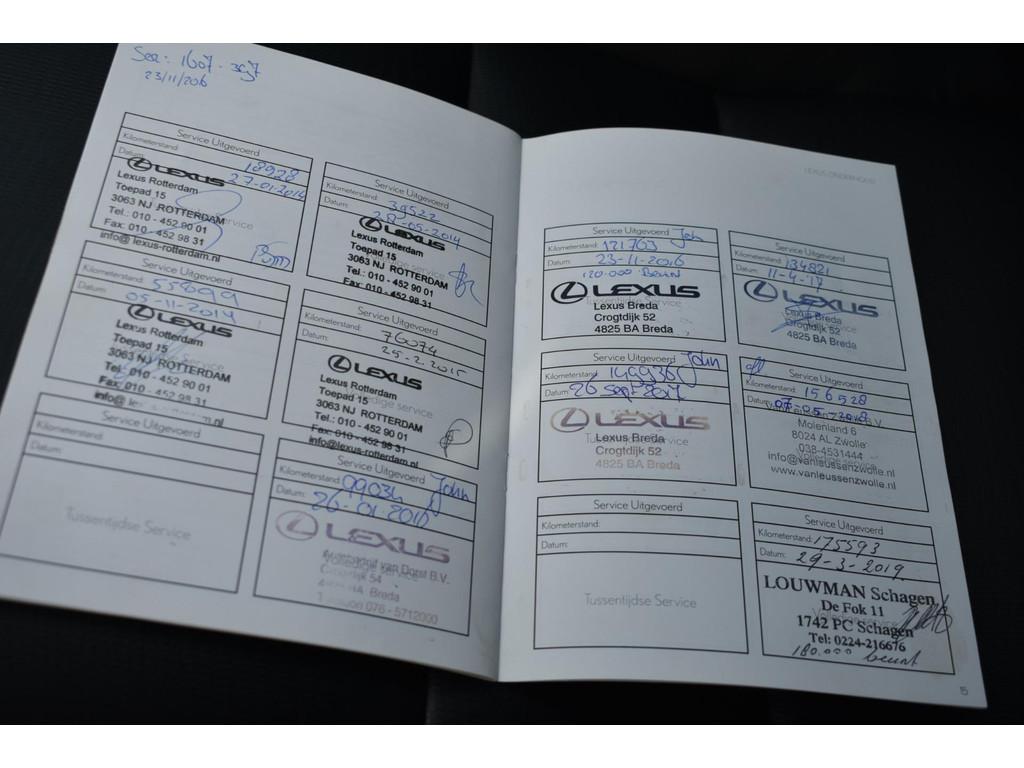 23/11/2016
Service Uitgevoerd
Kilometerstand: 18928
Datum: 27-01-2014
LEXUS
Lexus Rotterdam
Toepad 15
3063 NJ ROTTERDAM
Tel.: 010 - 452 90 01
Fax: 010 - 452 98 31
info@lexus-rotterdam.nl
Service Uitgevoerd
Kilometerstand: 39522
Datum: 28-05-2014
LEXUS
Lexus Rotterdam
Toepad 15
3063 NJ ROTTERDAM
Tel.: 010 - 452 90 01
Fax: 010 - 452 98 31
Service Uitgevoerd
Kilometerstand: 55899
Datum: 05-11-2014
LEXUS
Lexus Rotterdam
Toepad 15
3063 NJ ROTTERDAM
Tel.: 010 - 452 90 01
Fax: 010 - 452 98 31
Service Uitgevoerd
Kilometerstand: 76074
Datum: 25-2-2015
LEXUS
Lexus Rotterdam
Toepad 15
3063 NJ ROTTERDAM
Tel.: 010 - 452 90 01
Fax: 010 - 452 98 31
info@lexus-rotterdam.nl
Service Uitgevoerd
Kilometerstand:
Datum:
Tussentijdse Service
Service Uitgevoerd
Kilometerstand: 99034 John
Datum: 26-01-2016
LEXUS
van Dorst B.V.
Crogtdijk 54
BA Breda
076 - 5712000
LEXUS ONDERHOUD
Service Uitgevoerd
Kilometerstand: 121763
Datum: 23-11-2016
120.000 Beurt
LEXUS
Tussentijdse Service
Lexus Breda
Crogtdijk 52
4825 BA Breda
Service Uitgevoerd
Kilometerstand: 134821
Datum: 11-4-17
LEXUS
Lexus Breda
Crogtdijk 52
4825 BA Breda
Service Uitgevoerd John
Kilometerstand:
Datum: 26 sept 2017
LEXUS
Lexus Breda
Crogtdijk 52
4825 BA Breda
Service Uitgevoerd
Kilometerstand: 156528
Datum: 07-05-2018
Molenland 6
8024 AL Zwolle
038-4531444
info@vanleussenzwolle.nl
www.vanleussenzwolle.nl
Service Uitgevoerd
Kilometerstand:
Datum:
Tussentijdse Service
Service Uitgevoerd
Kilometerstand: 175593
Datum: 29-3-2019.
LOUWMAN Schagen
De Fok 11
1742 PC Schagen
Tel: 0224-216676
180.000 beurt
15